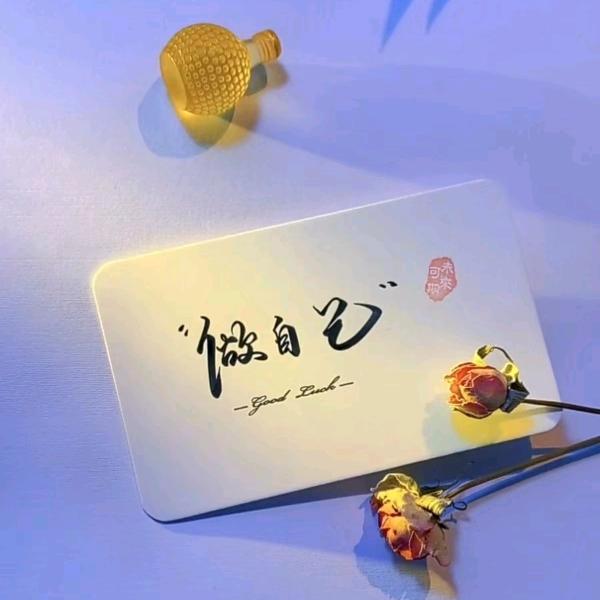 "做自己"
—Good Luck—
未來可期